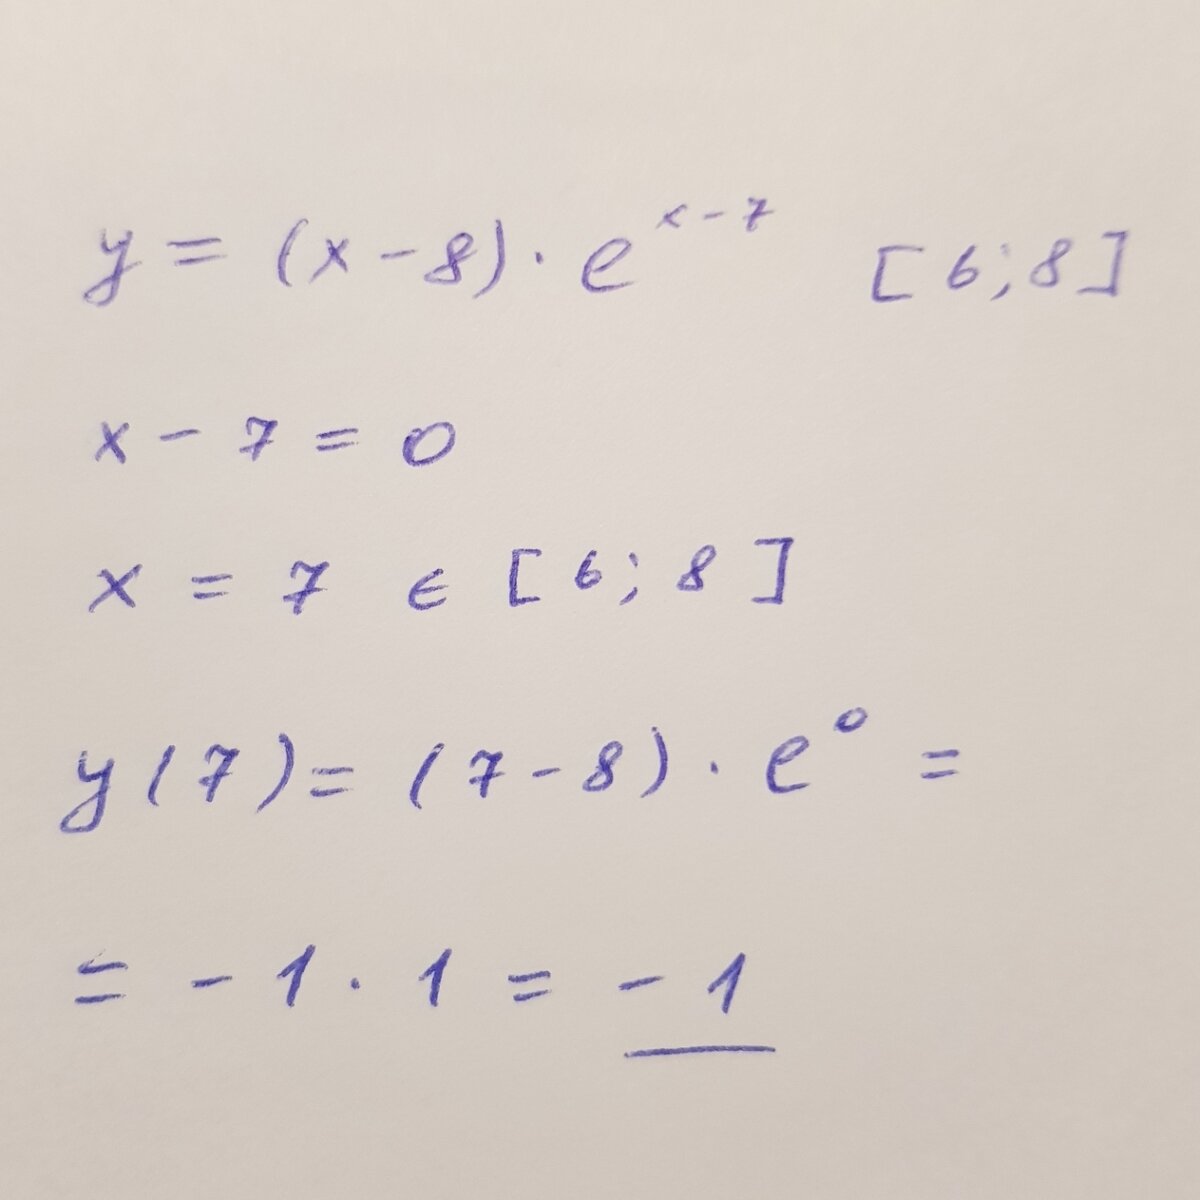 y = (x - 8) · e^{x - 7} [6; 8]
x - 7 = 0
x = 7 ∈ [6; 8]
y(7) = (7 - 8) · e^0 =
= - 1 · 1 = - 1